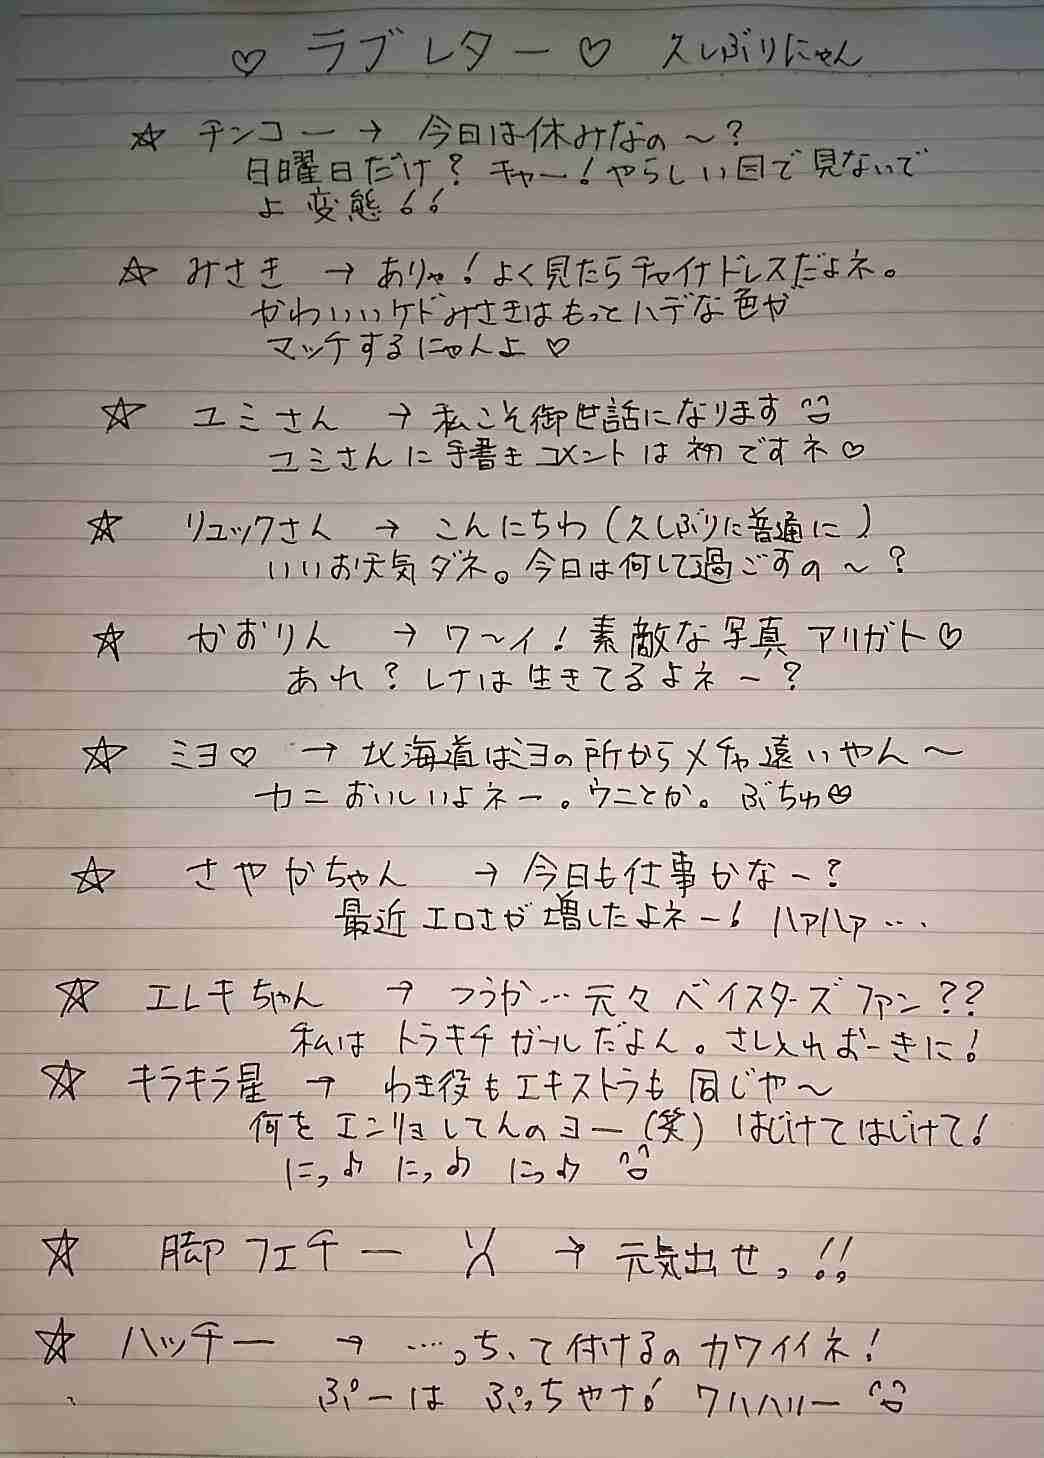 ♡ ラブレター ♡ 久しぶりにゃん
☆ チンコー → 今日は休みなの〜?
日曜日だけ? キャー! やらしい目で見ないで
よ 変態!!
☆ みさき → ありゃ! よく見たらチャイナドレスだよネ。
かわいいケドみさきはもっとハデな色が
マッチするにゃんよ♡
☆ ユミさん → 私こそ御世話になります
ユミさんに手書きコメントは初ですネ♡
☆ リュックさん → こんにちわ(久しぶりに普通に)
いいお天気ダネ。今日は何して過ごすの〜?
☆ かおりん → ワ〜イ! 素敵な写真アリガト♡
あれ? レナは生きてるよネー?
☆ ミヨ♡ → 北海道はミヨの所からメチャ遠いやん〜
カニおいしいよネー。ウニとか。ぶちゅ
☆ さやかちゃん → 今日も仕事かなー?
最近エロさが増したよネー! ハァハァ…
☆ エレキちゃん → つうか…元々ベイスターズファン??
私はトラキチガールだよん。さし入れおーきに!
☆ キラキラ星 → わき役もエキストラも同じや〜
何をエンリョしてんのヨー(笑) はじけてはじけて!
にっ♪ にっ♪ にっ♪
☆ 脚フェチー → 元気出せっ!!
☆ ハッチー → …っち、て付けるのカワイイネ!
ぷーは ぷっちやナ! ワハハハー